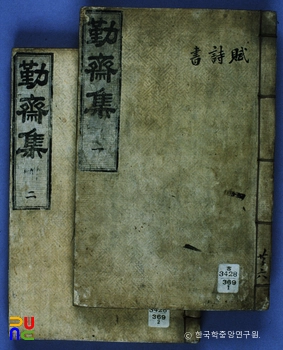 賦詩書
勤齋集 一
3428
369
1
勤齋集 二
3428
369
2
© 한국학중앙연구원